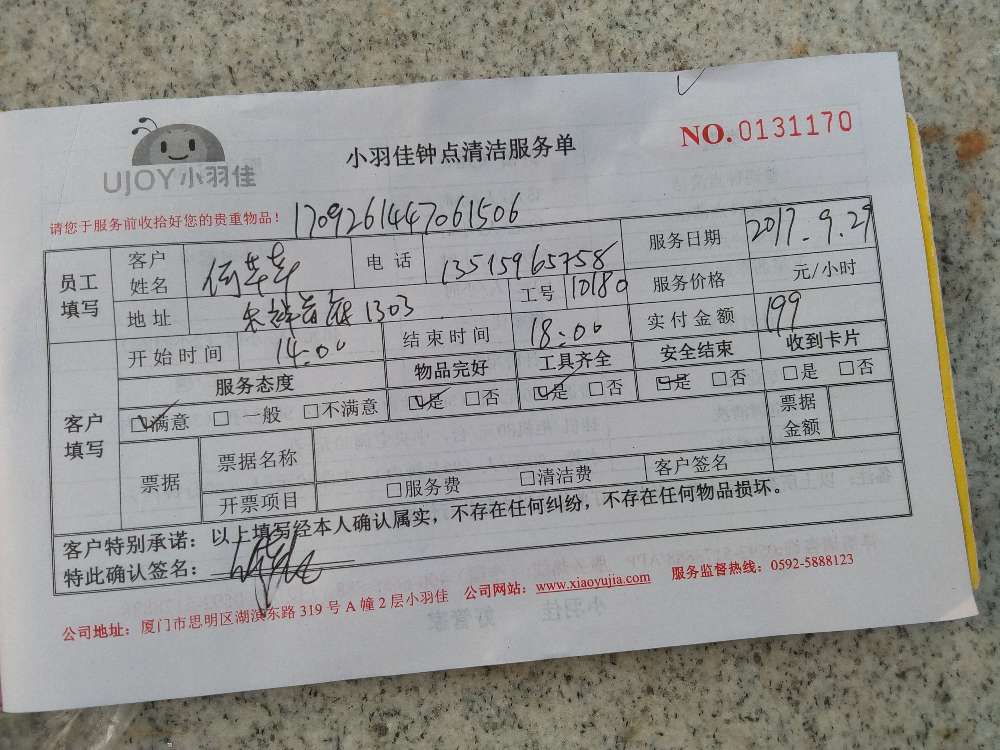 UJOY小羽佳
小羽佳钟点清洁服务单
NO.0131170
请您于服务前收拾好您的贵重物品！
1709261447061506
员工填写 客户姓名 电话 13515965758 服务日期 2017.9.29
地址 1303 工号 10180 服务价格 元/小时
客户填写 开始时间 14:00 结束时间 18:00 实付金额 199
服务态度 物品完好 工具齐全 安全结束 收到卡片
☑满意 □一般 □不满意 ☑是 □否 ☑是 □否 ☑是 □否 □是 □否
票据 票据名称 票据金额
开票项目 □服务费 □清洁费 客户签名
客户特别承诺：以上填写经本人确认属实，不存在任何纠纷，不存在任何物品损坏。
特此确认签名：
公司地址：厦门市思明区湖滨东路319号A幢2层小羽佳 公司网站：www.xiaoyujia.com 服务监督热线：0592-5888123